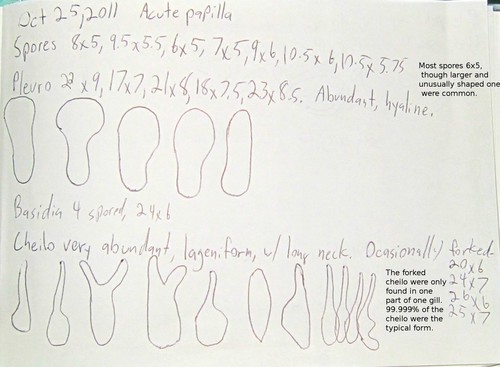 Oct 25, 2011 Acute papilla
Spores 8x5, 9.5x5.5, 6x5, 7x5, 9x6, 10.5x6, 10.5x5.75
Most spores 6x5,
though larger and
unusually shaped one
were common.
Pleuro 22x9, 17x7, 21x8, 18x7.5, 23x8.5. Abundant, hyaline.
Basidia 4 spored, 24x6
Cheilo very abundant, lageniform, w/ long neck. Ocasionally forked.
20x6
24x7
26x6
25x7
The forked
cheilo were only
found in one
part of one gill.
99.999% of the
cheilo were the
typical form.